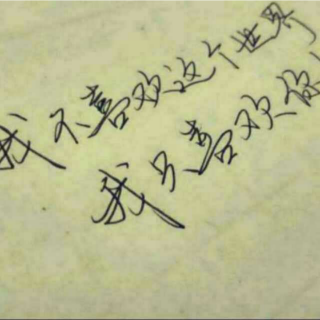 我不喜欢这个世界
我只喜欢你